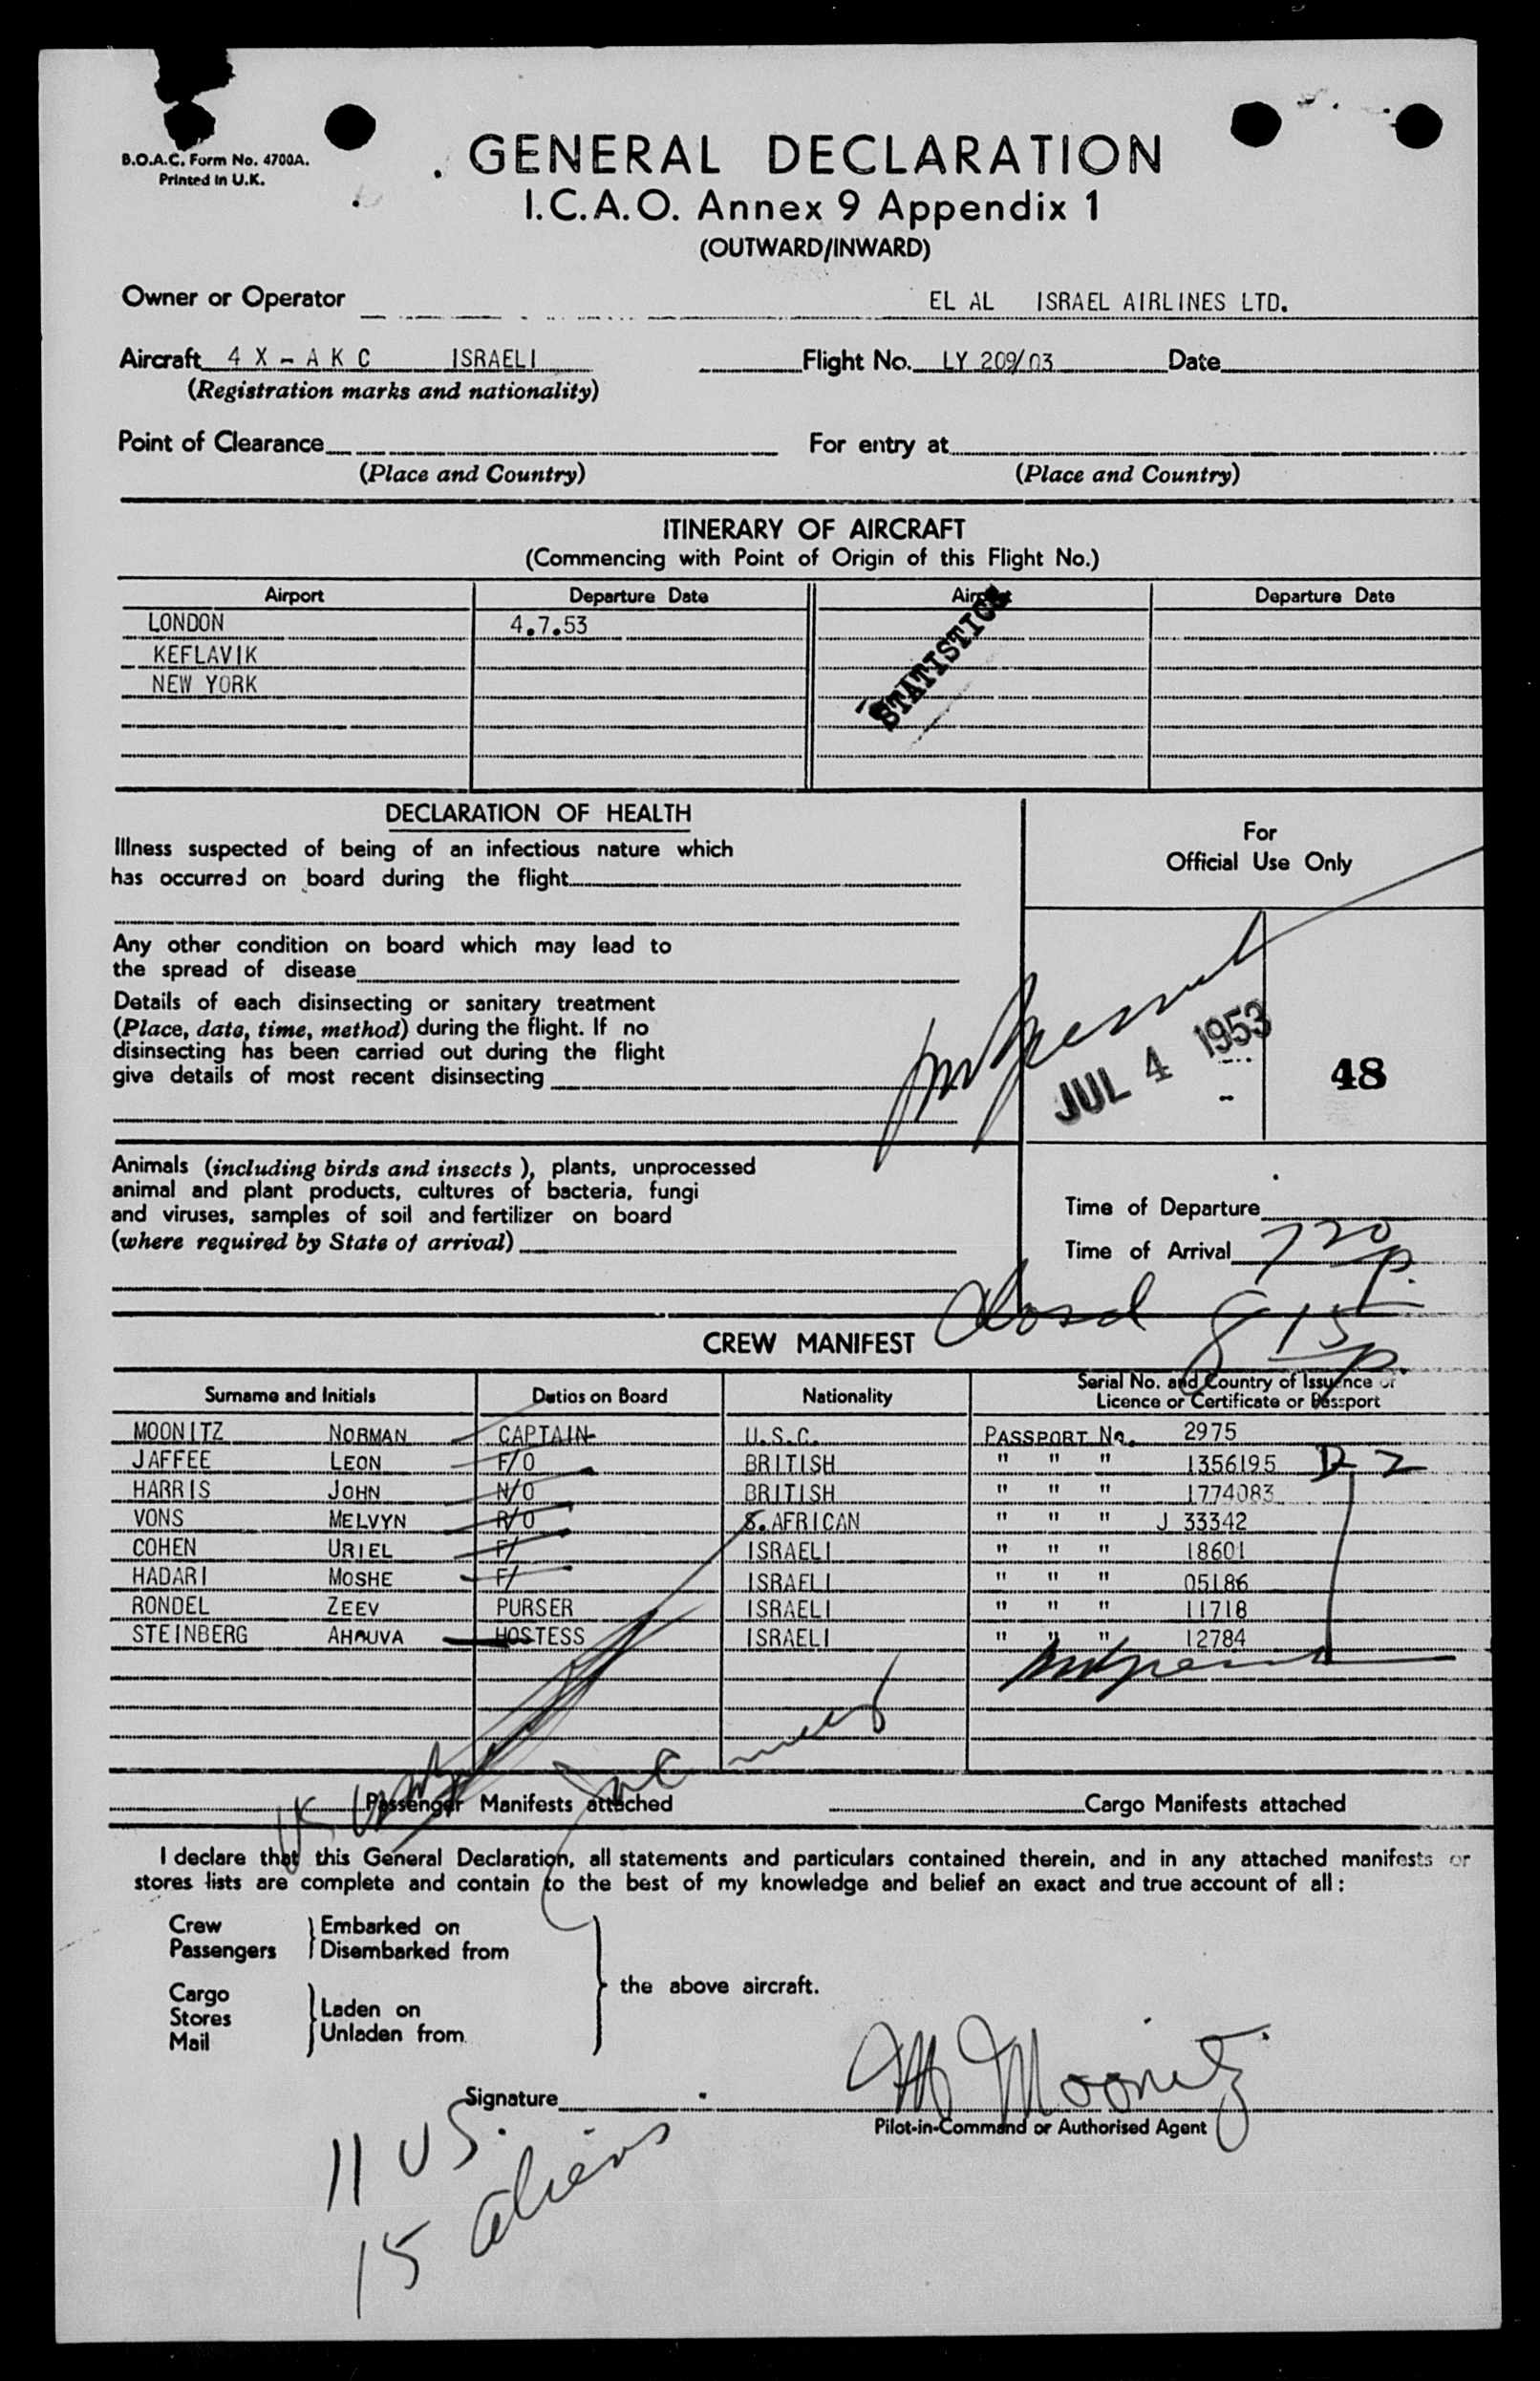 B.O.A.C. Form No. 4700A.
Printed in U.K.
GENERAL DECLARATION
I.C.A.O. Annex 9 Appendix 1
(OUTWARD/INWARD)
Owner or Operator EL AL ISRAEL AIRLINES LTD.
Aircraft 4 X - A K C ISRAELI Flight No. LY 209/03 Date
(Registration marks and nationality)
Point of Clearance For entry at
(Place and Country) (Place and Country)
ITINERARY OF AIRCRAFT
(Commencing with Point of Origin of this Flight No.)
Airport Departure Date Airport Departure Date
LONDON 4.7.53
KEFLAVIK
NEW YORK
STATISTICS
DECLARATION OF HEALTH
Illness suspected of being of an infectious nature which
has occurred on board during the flight
Any other condition on board which may lead to
the spread of disease
Details of each disinsecting or sanitary treatment
(Place, date, time, method) during the flight. If no
disinsecting has been carried out during the flight
give details of most recent disinsecting
Animals (including birds and insects), plants, unprocessed
animal and plant products, cultures of bacteria, fungi
and viruses, samples of soil and fertilizer on board
(where required by State of arrival)
For
Official Use Only
JUL 4 1953
48
Time of Departure
Time of Arrival 7 20 P.
Closed 8 15 P.
CREW MANIFEST
Surname and Initials Duties on Board Nationality Serial No. and Country of Issuence or
Licence or Certificate or Passport
MOONITZ NORMAN CAPTAIN U.S.C. PASSPORT No. 2975
JAFFEE LEON F/O BRITISH " " " 1356195 D 2
HARRIS JOHN N/O BRITISH " " " 1774083
VONS MELVYN R/O S.AFRICAN " " " J 33342
COHEN URIEL F/ ISRAELI " " " 18601
HADARI MOSHE F/ ISRAELI " " " 05186
RONDEL ZEEV PURSER ISRAELI " " " 11718
STEINBERG AHAUVA HOSTESS ISRAELI " " " 12784
Passenger Manifests attached Cargo Manifests attached
I declare that this General Declaration, all statements and particulars contained therein, and in any attached manifests or
stores lists are complete and contain to the best of my knowledge and belief an exact and true account of all :
Crew Embarked on
Passengers Disembarked from
the above aircraft.
Cargo
Stores Laden on
Mail Unladen from
Signature M Moonitz
Pilot-in-Command or Authorised Agent
11 US.
15 aliens